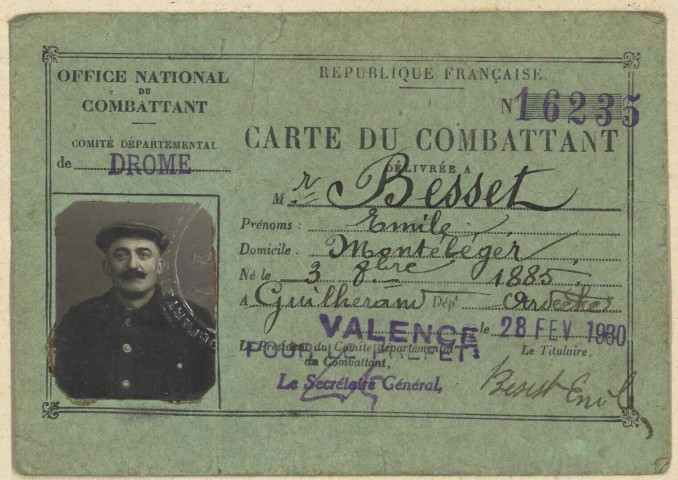 OFFICE NATIONAL
DU
COMBATTANT
COMITÉ DÉPARTEMENTAL
de DROME
REPUBLIQUE FRANÇAISE
N 16235
CARTE DU COMBATTANT
DÉLIVRÉE A
Mr Besset
Prénoms : Emile
Domicile . Montéléger
Né le 3 8bre 1885
A Guilherand Dépt Ardèche
VALENCE le 28 FEV 1930
Le Président du Comité départemental
du Combattant,
POUR LE PREFET:
Le Secrétaire Général,
Le Titulaire.
Besset Emile